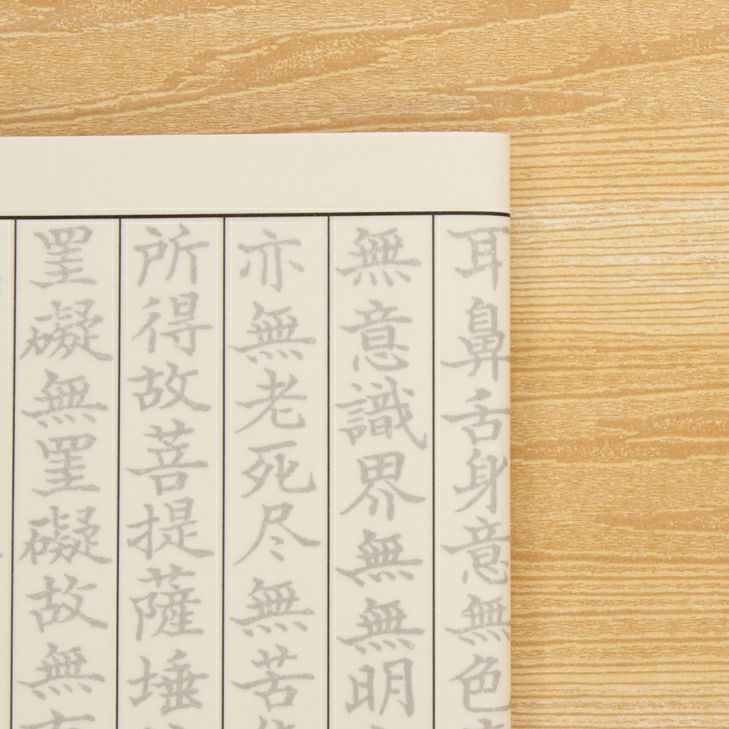 耳鼻舌身意無色
無意識界無無明
亦無老死尽無苦
所得故菩提薩埵
罣礙無罣礙故無